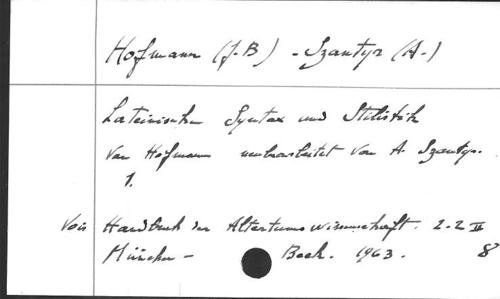 Hofmann (J.B) - Szantyr (A-)
Lateinische Syntax und Stilistik
Von Hofmann umbearbeitet von A. Szantyr.
1.
Vois Handbuch der Altertumswissenschaft. 2-2 II
München - Beck. 1963. 8